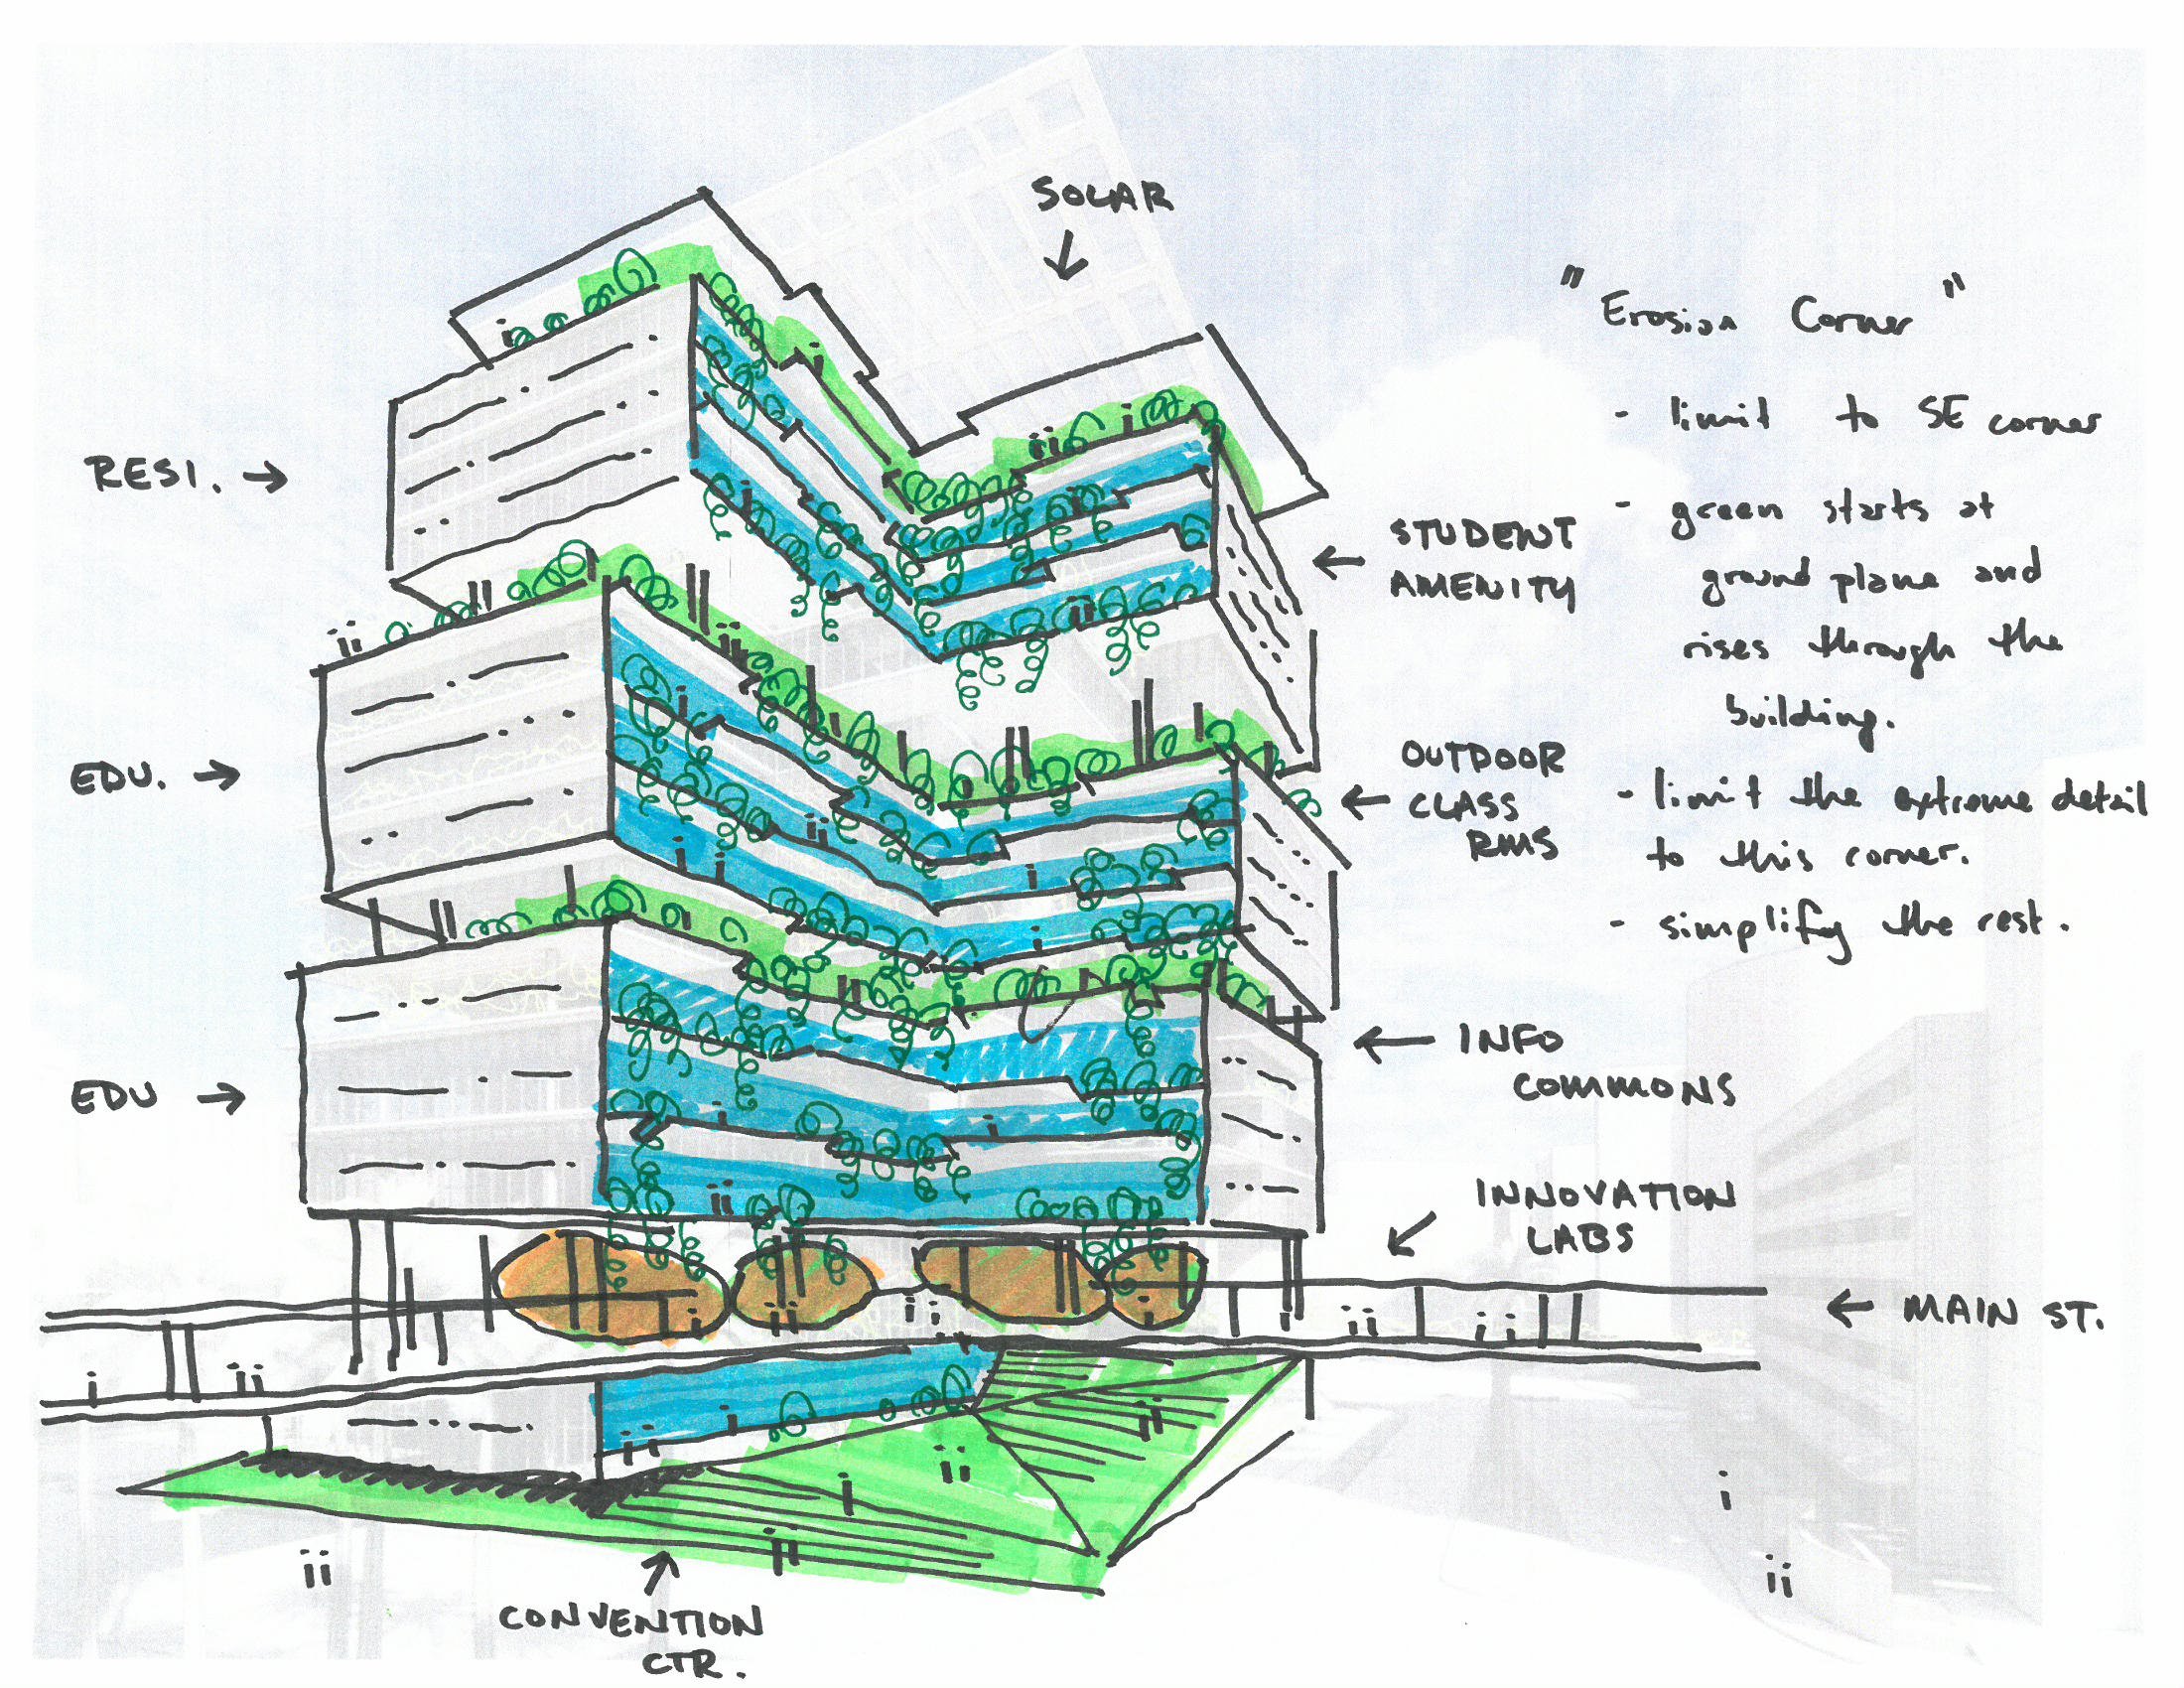 SOLAR
"Erosion Corner"
- limit to SE corner
- green starts at
ground plane and
rises through the
building.
- limit the extreme detail
to this corner.
- simplify the rest.
RESI.
STUDENT
AMENITY
EDU.
OUTDOOR
CLASS
RMS
EDU
INFO
COMMONS
INNOVATION
LABS
MAIN ST.
CONVENTION
CTR.